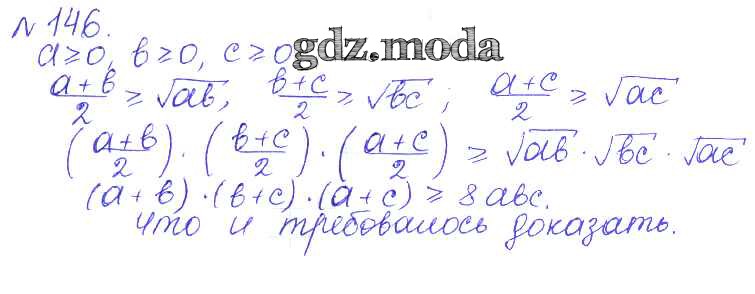 № 146.
a ≥ 0, в ≥ 0, c ≥ 0 gdz.moda
(a+в)/2 ≥ √aв, (в+c)/2 ≥ √вc; (a+c)/2 ≥ √ac
((a+в)/2) · ((в+c)/2) · ((a+c)/2) ≥ √aв · √вc · √ac
(a+в)·(в+c)·(a+c) ≥ 8aвc.
Что и требовалось доказать.